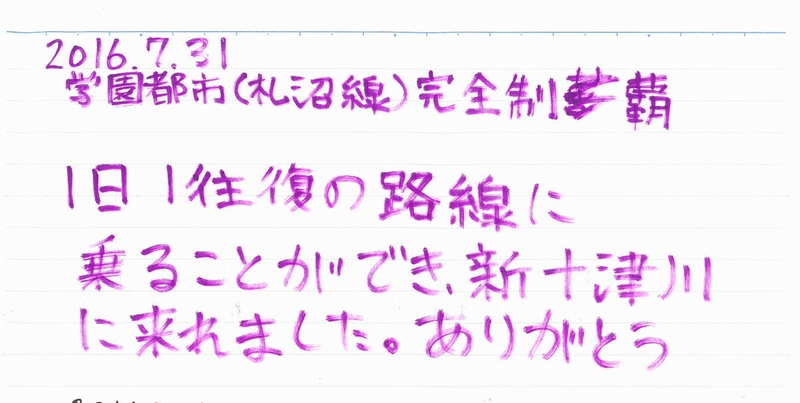 2016.7.31
学園都市(札沼線)完全制覇
1日1往復の路線に
乗ることができ、新十津川
に来れました。ありがとう